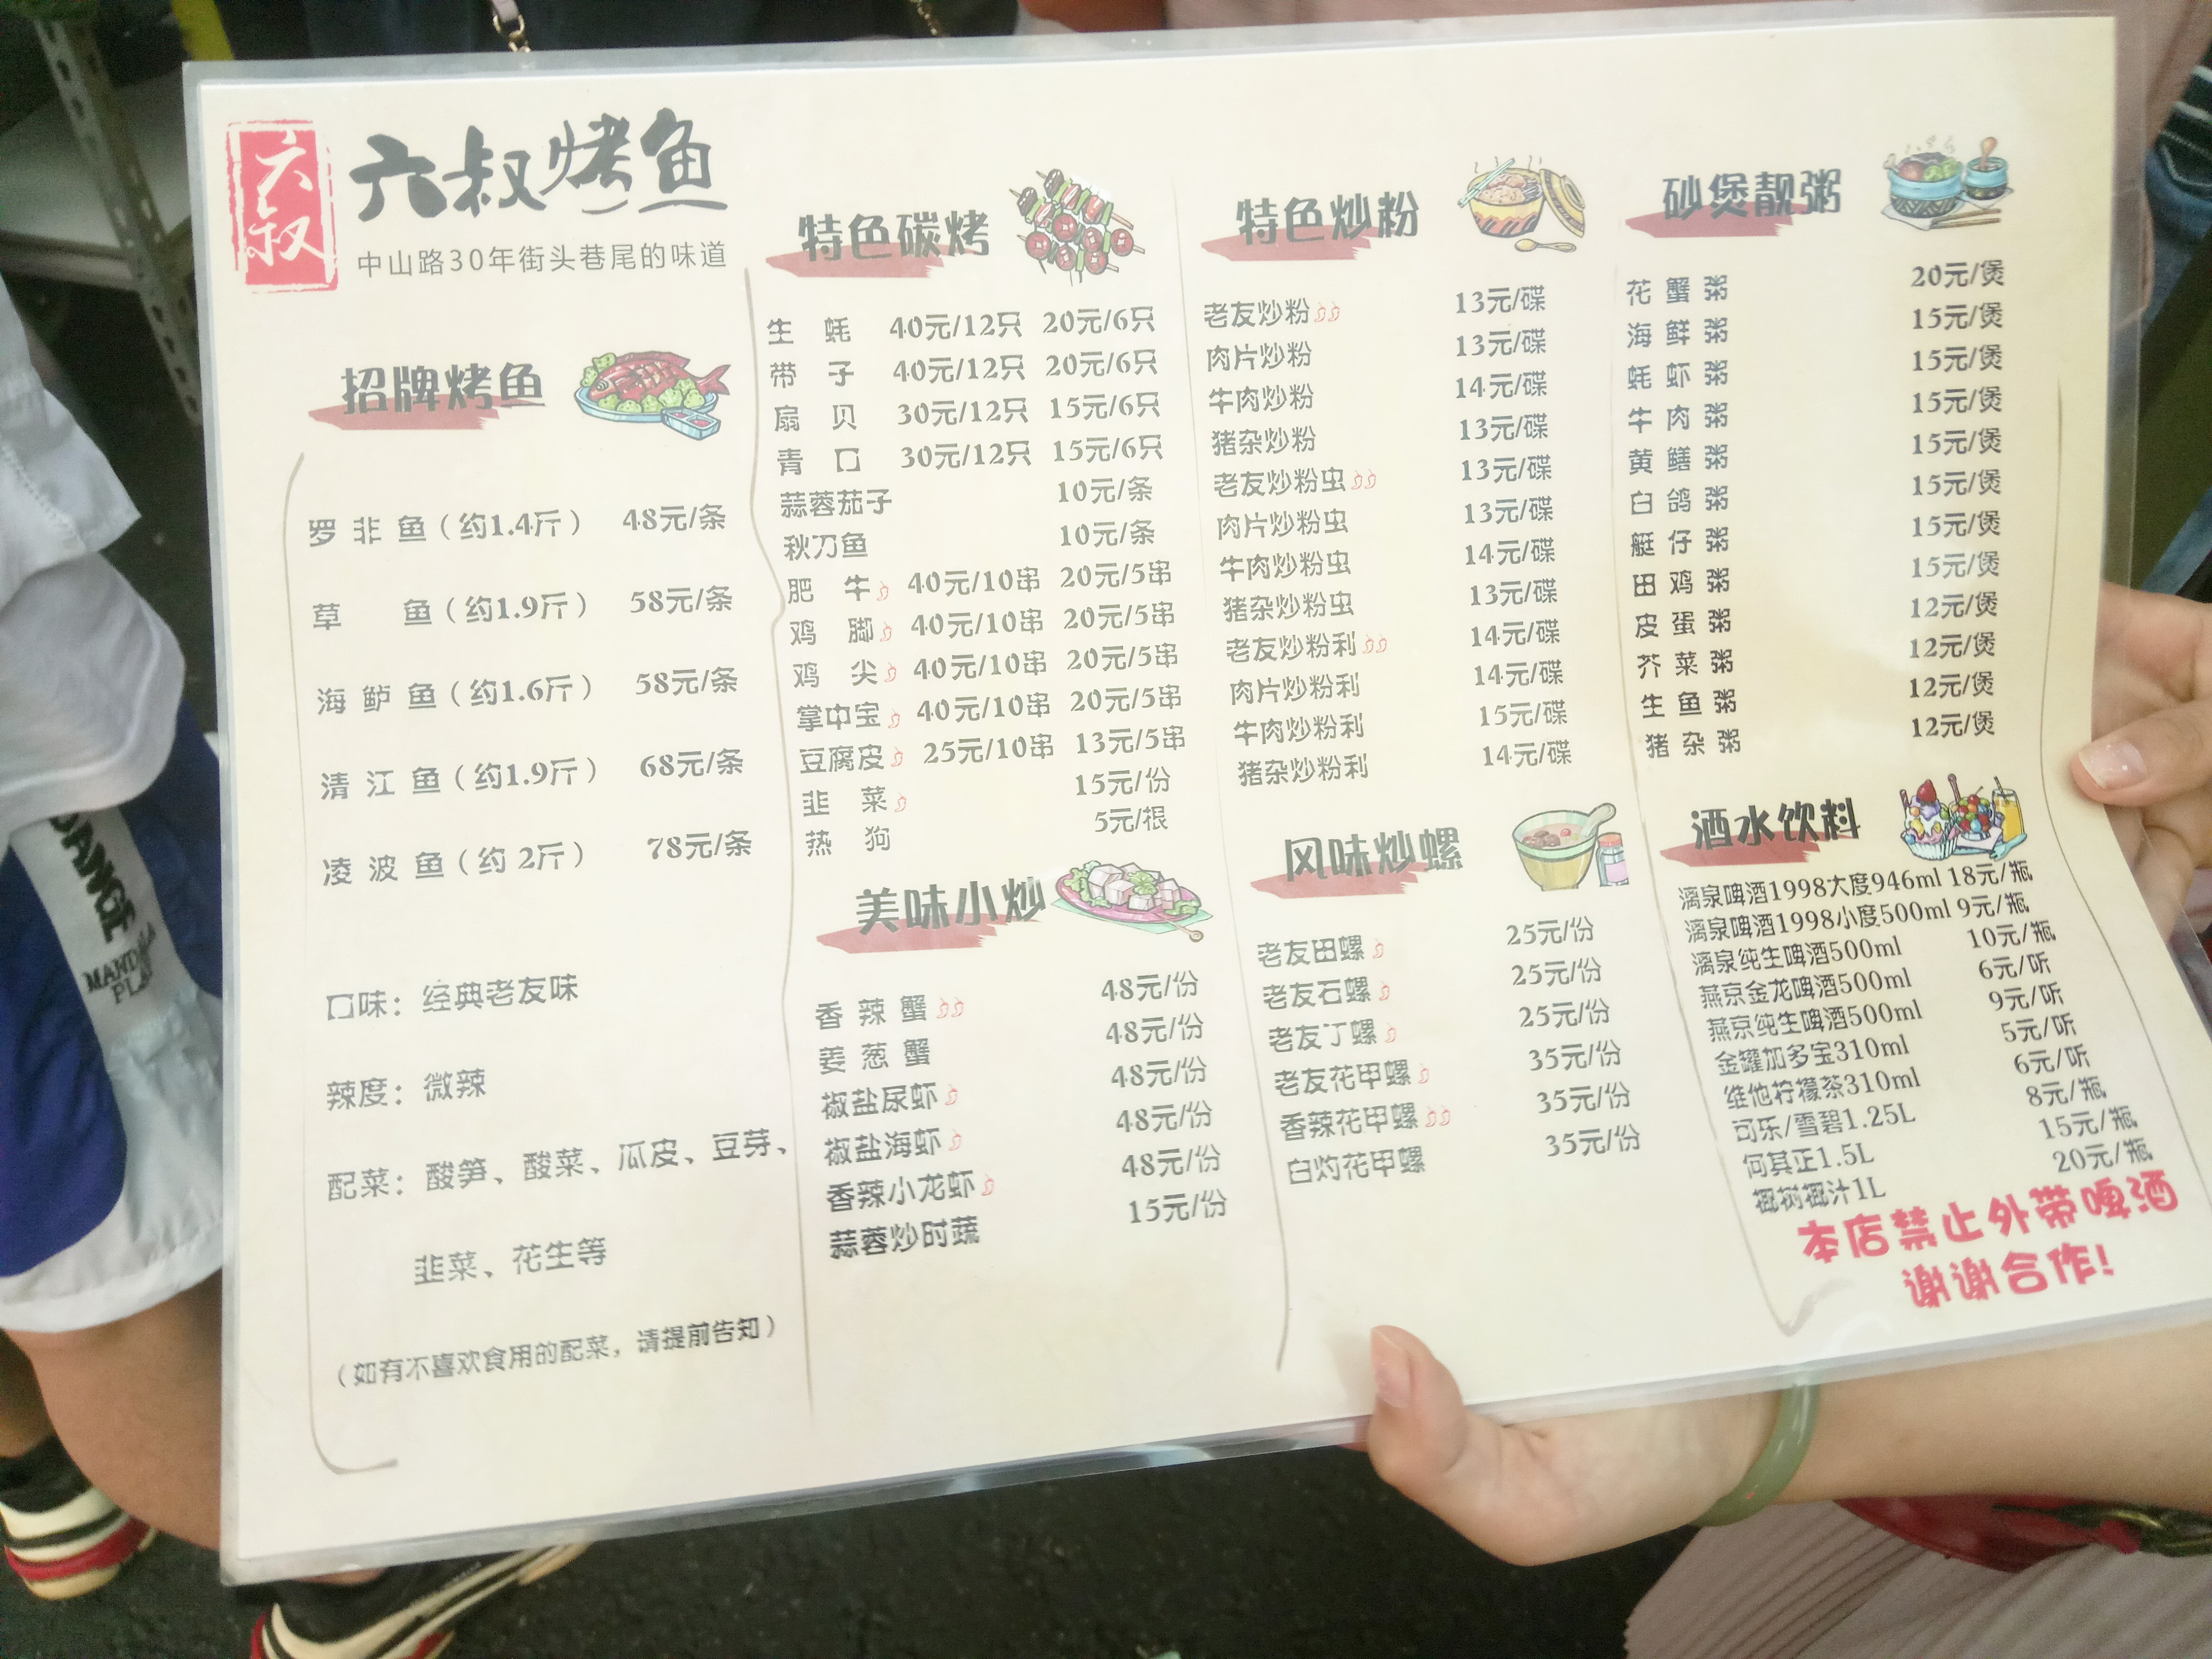 六叔
六叔烤鱼
中山路30年街头巷尾的味道
招牌烤鱼
罗非鱼（约1.4斤） 48元/条
草鱼（约1.9斤） 58元/条
海鲈鱼（约1.6斤） 58元/条
清江鱼（约1.9斤） 68元/条
凌波鱼（约 2斤） 78元/条
口味：经典老友味
辣度：微辣
配菜：酸笋、酸菜、瓜皮、豆芽、
韭菜、花生等
（如有不喜欢食用的配菜，请提前告知）
特色碳烤
生蚝 40元/12只 20元/6只
带子 40元/12只 20元/6只
扇贝 30元/12只 15元/6只
青口 30元/12只 15元/6只
蒜蓉茄子 10元/条
秋刀鱼 10元/条
肥牛 40元/10串 20元/5串
鸡脚 40元/10串 20元/5串
鸡尖 40元/10串 20元/5串
掌中宝 40元/10串 20元/5串
豆腐皮 25元/10串 13元/5串
韭菜 15元/份
热狗 5元/根
美味小炒
香辣蟹 48元/份
姜葱蟹 48元/份
椒盐尿虾 48元/份
椒盐海虾 48元/份
香辣小龙虾 48元/份
蒜蓉炒时蔬 15元/份
特色炒粉
老友炒粉 13元/碟
肉片炒粉 13元/碟
牛肉炒粉 14元/碟
猪杂炒粉 13元/碟
老友炒粉虫 13元/碟
肉片炒粉虫 13元/碟
牛肉炒粉虫 14元/碟
猪杂炒粉虫 13元/碟
老友炒粉利 14元/碟
肉片炒粉利 14元/碟
牛肉炒粉利 15元/碟
猪杂炒粉利 14元/碟
风味炒螺
老友田螺 25元/份
老友石螺 25元/份
老友丁螺 25元/份
老友花甲螺 35元/份
香辣花甲螺 35元/份
白灼花甲螺 35元/份
砂煲靓粥
花蟹粥 20元/煲
海鲜粥 15元/煲
蚝虾粥 15元/煲
牛肉粥 15元/煲
黄鳝粥 15元/煲
白鸽粥 15元/煲
艇仔粥 15元/煲
田鸡粥 15元/煲
皮蛋粥 12元/煲
芥菜粥 12元/煲
生鱼粥 12元/煲
猪杂粥 12元/煲
酒水饮料
漓泉啤酒1998大度946ml 18元/瓶
漓泉啤酒1998小度500ml 9元/瓶
漓泉纯生啤酒500ml 10元/瓶
燕京金龙啤酒500ml 6元/听
燕京纯生啤酒500ml 9元/听
金罐加多宝310ml 5元/听
维他柠檬茶310ml 6元/听
可乐/雪碧1.25L 8元/瓶
何其正1.5L 15元/瓶
椰树椰汁1L 20元/瓶
本店禁止外带啤酒
谢谢合作！